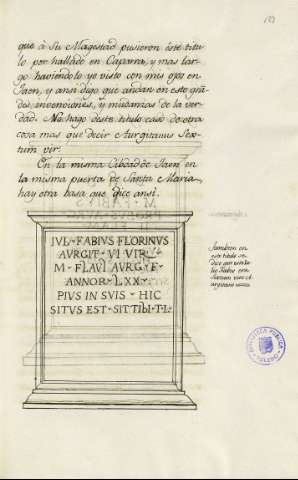 187
que à Su Magestad pusieron éste titu
lo por hallado en Caparra, y mas lar
go haviendolo yo visto con mis ojos en
Jaen, y ansi digo que andan en esto grã
des invenciones, y mudanzas de la ver
dad. No hago deste titulo caso de otra
cosa mas que decir Aurgitanus Sex
tum vir.
En la misma Cibdad de Jaen en
la misma puerta de Santa Maria
hay otra basa que dice ansi.
IVL-FABIVS FLORINVS
AVRGIT-VI VIR
M-FLAVI AVRG-F-
ANNOR-LXX-
PIVS IN SVIS-HIC
SITVS EST-SIT TIBI-T-L-
Tambien en
este titulo se
dice que este Iu
lio Fabio era
BIBLIOTECA PUBLICA
TOLEDO